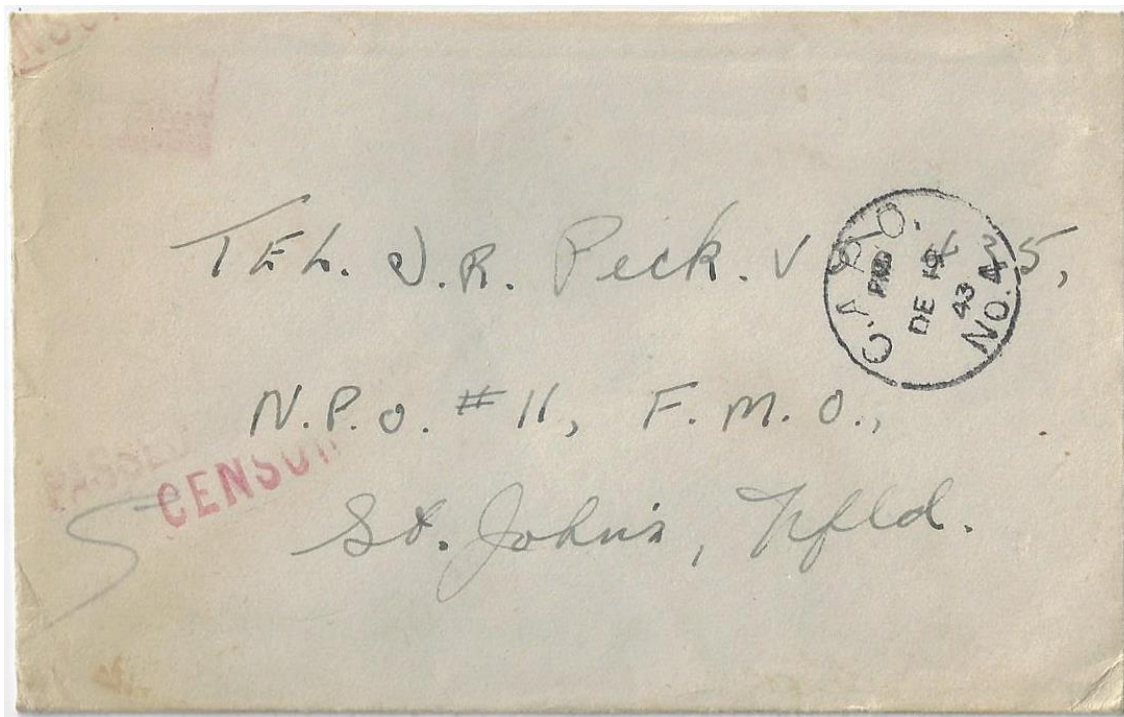 TEL. D.R. Peck. V 5,
C.A.P.O.
PM
DE 19
43
NO. 4
N.P.O. #11, F.M.O.,
PASSED
CENSOR
St. John's, Nfld.